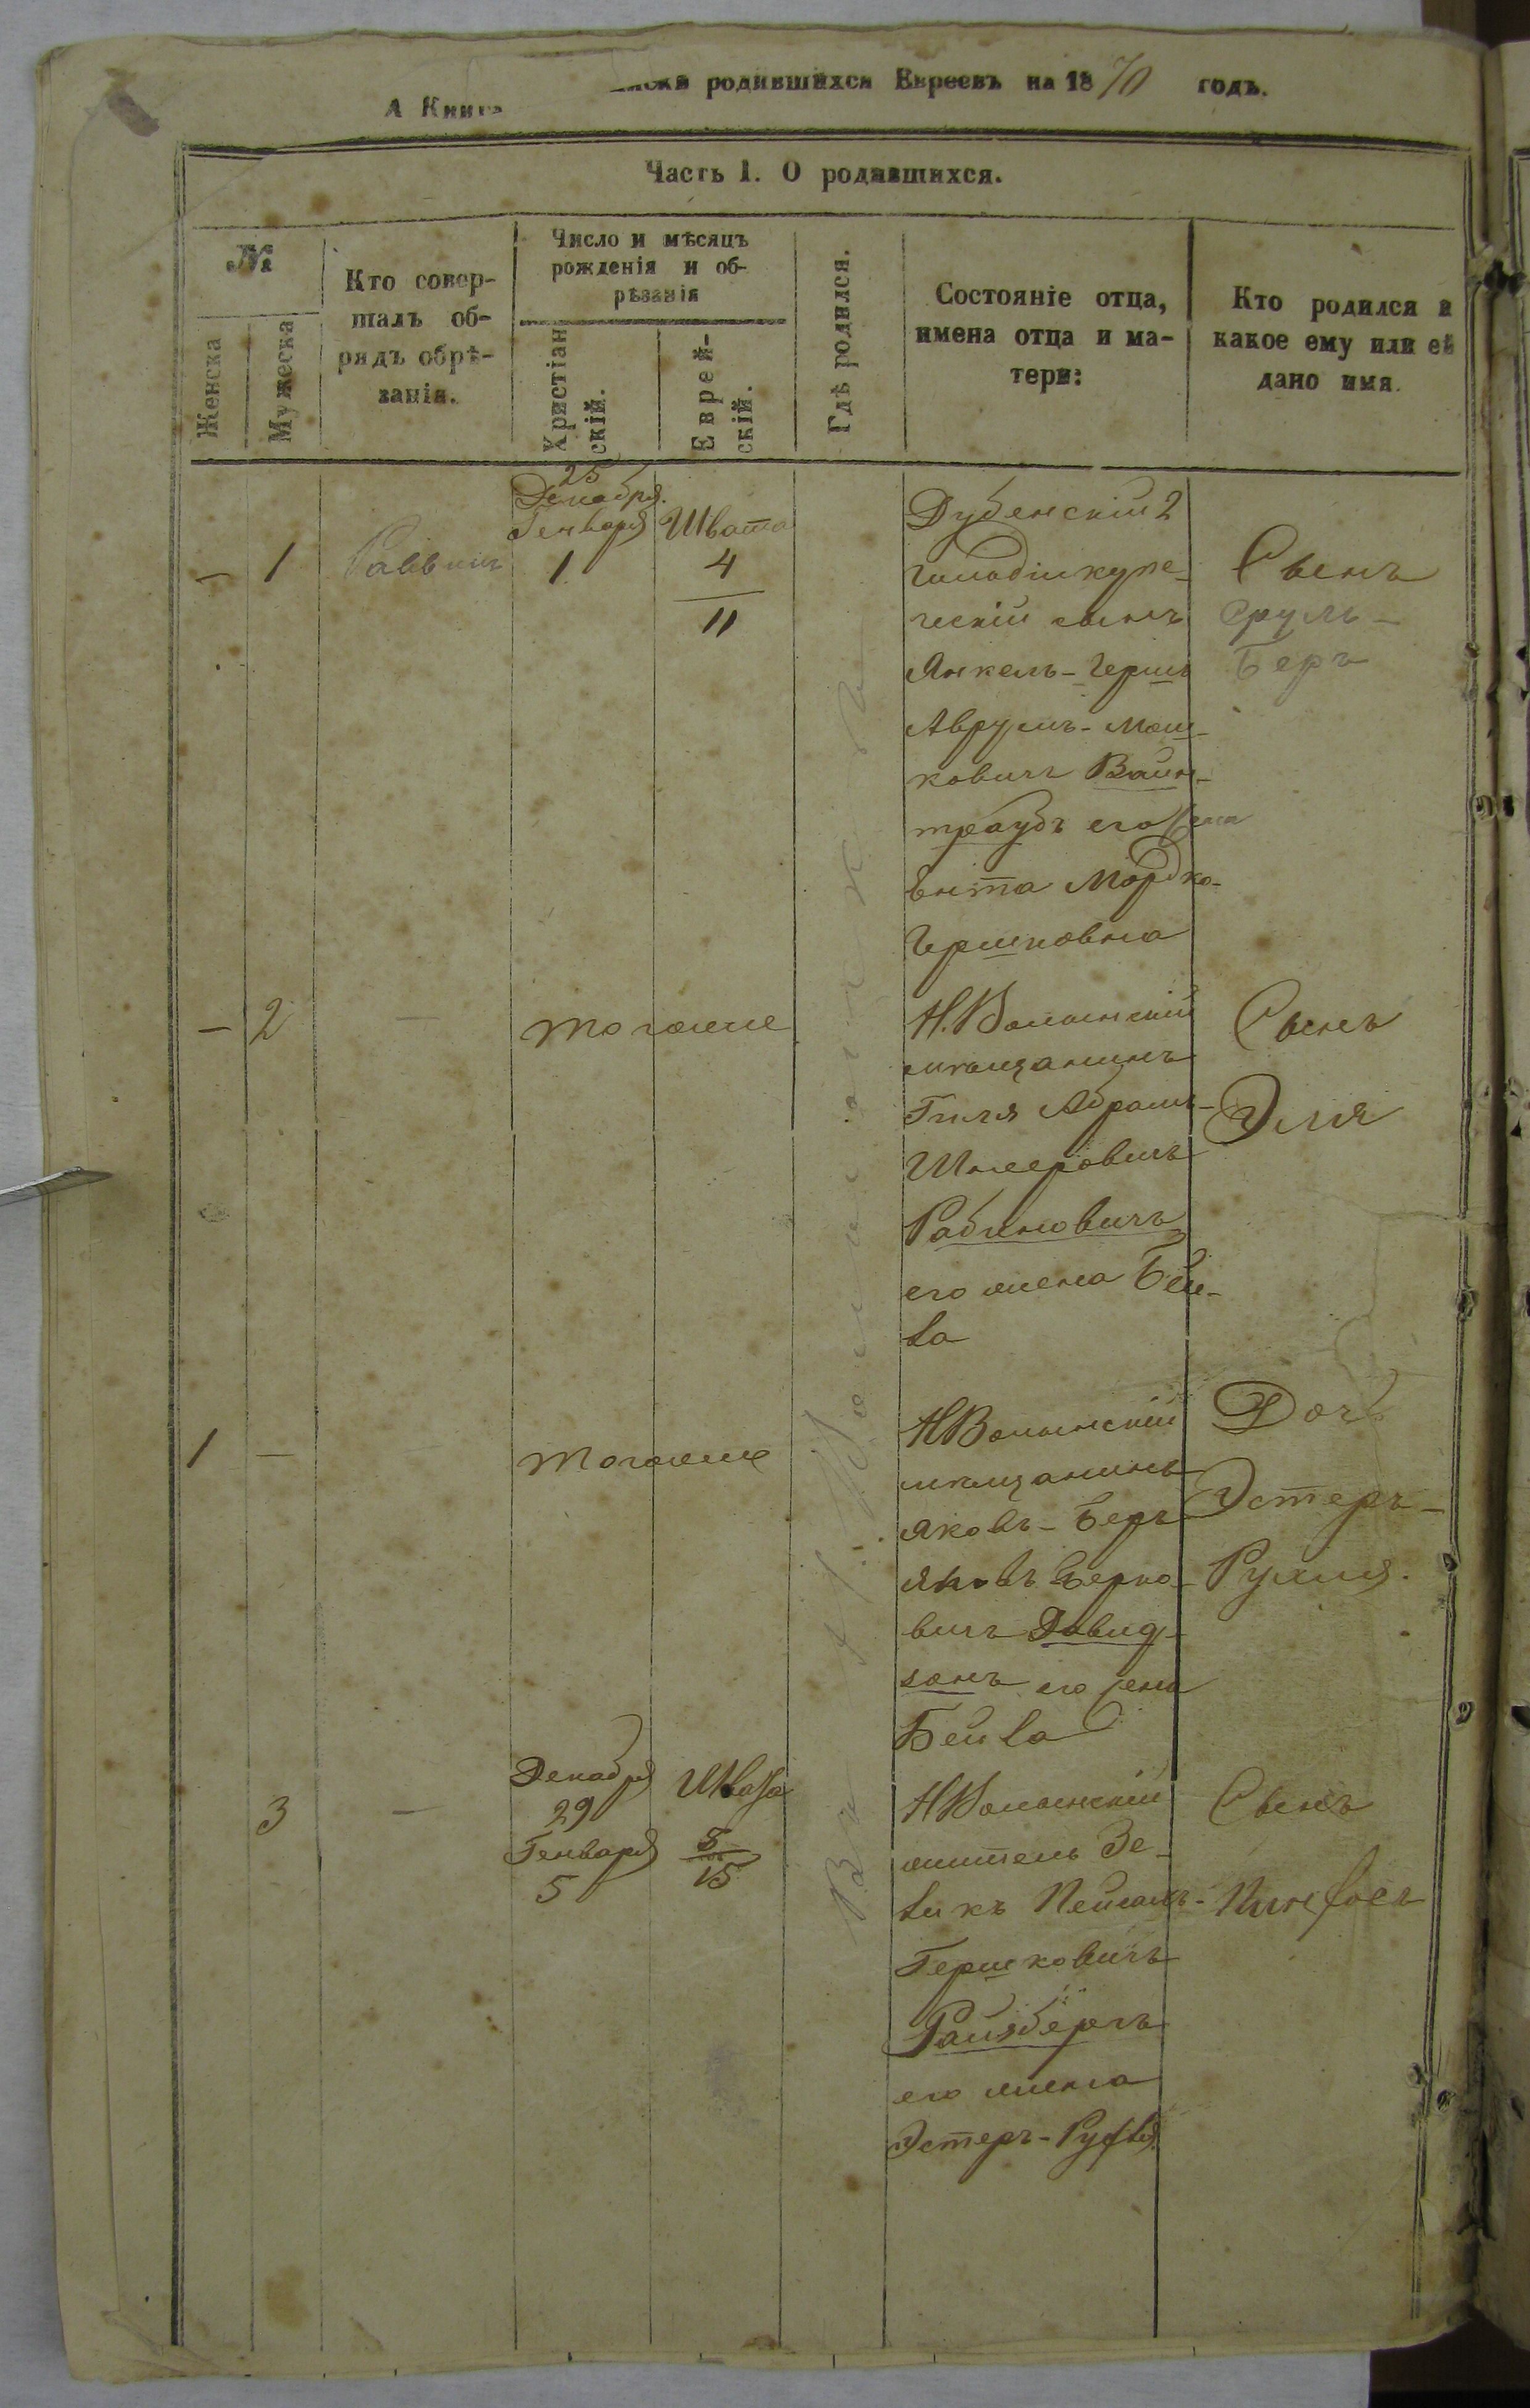 А Книга
родившихся Евреевъ на 1870 годъ.
Часть I. О родившихся.
№
Женска
Мужеска
Кто совер-
шалъ об-
рядъ обрѣ-
занія.
Число и мѣсяцъ
рожденія и об-
рѣзанія
Христіан
скій.
Еврей-
скій.
Гдѣ родился.
Состояніе отца,
имена отца и ма-
тери:
Кто родился и
какое ему или ей
дано имя.
— 1
Раввинъ
25
Декабря.
Генваря
1
Швата
4
11
Дубенскій 2
гильдіи купе-
ческій сынъ
Янкель-Герш
Аврумъ-Мош-
ковичъ Вайн-
траубъ его жена
Ента Мордко-
Гершковна
Сынъ
Сруль-
Беръ
— 2
—
тогоже
Н.Волынскій
мѣщанинъ
Гиля Абрамъ-
Шмеровичъ
Рабиновичъ
его жена Бей-
ла
Сынъ
Эля
1 —
тогоже
Н Волынскій
мѣщанинъ
Яковъ-Беръ
Яковъ Берко-
вичъ Давид-
зонъ его жена
Бейла
Дочь
Эстеръ-
Рухля.
3
—
Декабря
29
Генваря
5
Швата
8
15
Н Волынскій
житель Зе-
ликъ Пейсахъ-
Гершковичъ
Райзберъгъ
его жена
Эстеръ-Рухля
Сынъ
Пинхосъ